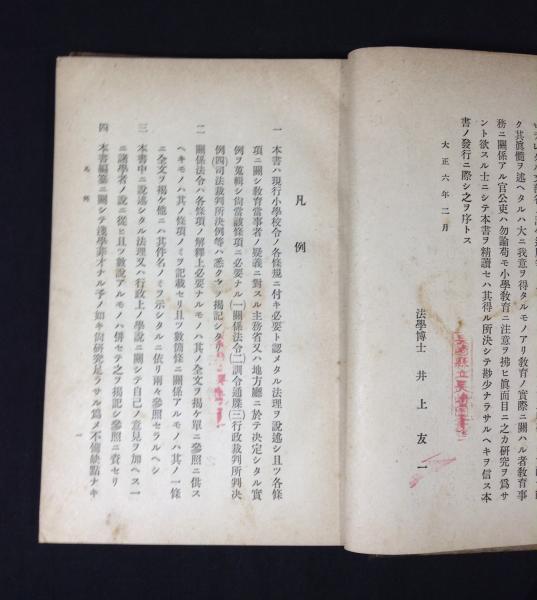 ク其眞髓ヲ述ヘタルハ大ニ我意ヲ得タルモノアリ教育ノ實際ニ關ハル者教育事
務ニ關係アル官公吏ハ勿論苟モ小學教育ニ注意ヲ拂ヒ眞面目ニ之カ研究ヲ爲サ
ント欲スル士ニシテ本書ヲ精讀セハ其得ル所決シテ尠少ナラサルヘキヲ信ス本
書ノ發行ニ際シ之ヲ序トス
大正六年二月
法學博士 井上友一
凡例
一 本書ハ現行小學校令ノ各條規ニ付キ必要ト認メタル法理ヲ說述シ且ツ各條
項ニ關シ教育當事者ノ疑義ニ對スル主務省又ハ地方廳ニ於テ決定シタル實
例ヲ蒐輯シ尙當該條項ニ必要ナル(一)關係法令(二)訓令通牒(三)行政裁判所判決
例(四)司法裁判所決例等ハ悉クヽヽ揭記シタリ
二 關係法令ハ各條項ノ解釋上必要ナルモノハ其ノ全文ヲ揭ケ單ニ參照ニ供ス
ヘキモノハ其ノ條項ノミヲ記載セリ且ツ數箇條ニ關係アルモノハ其ノ一條
ニ全文ヲ揭ケ他ニハ其件名ノミヲ示シタルニ依リ兩々參照セラルヘシ
三 本書中ニ說述シタル法理又ハ行政上ノ學說ニ關シテ自己ノ意見ヲ加ヘス一
ニ諸學者ノ說ニ從ヒ且ツ數說アルモノハ併セテ之ヲ揭記シ參照ニ資セリ
四 本書編纂ニ關シテ淺學菲才ナル予ノ如キ尙研究足ラサル爲メ不備缺點ナキ
凡例
一